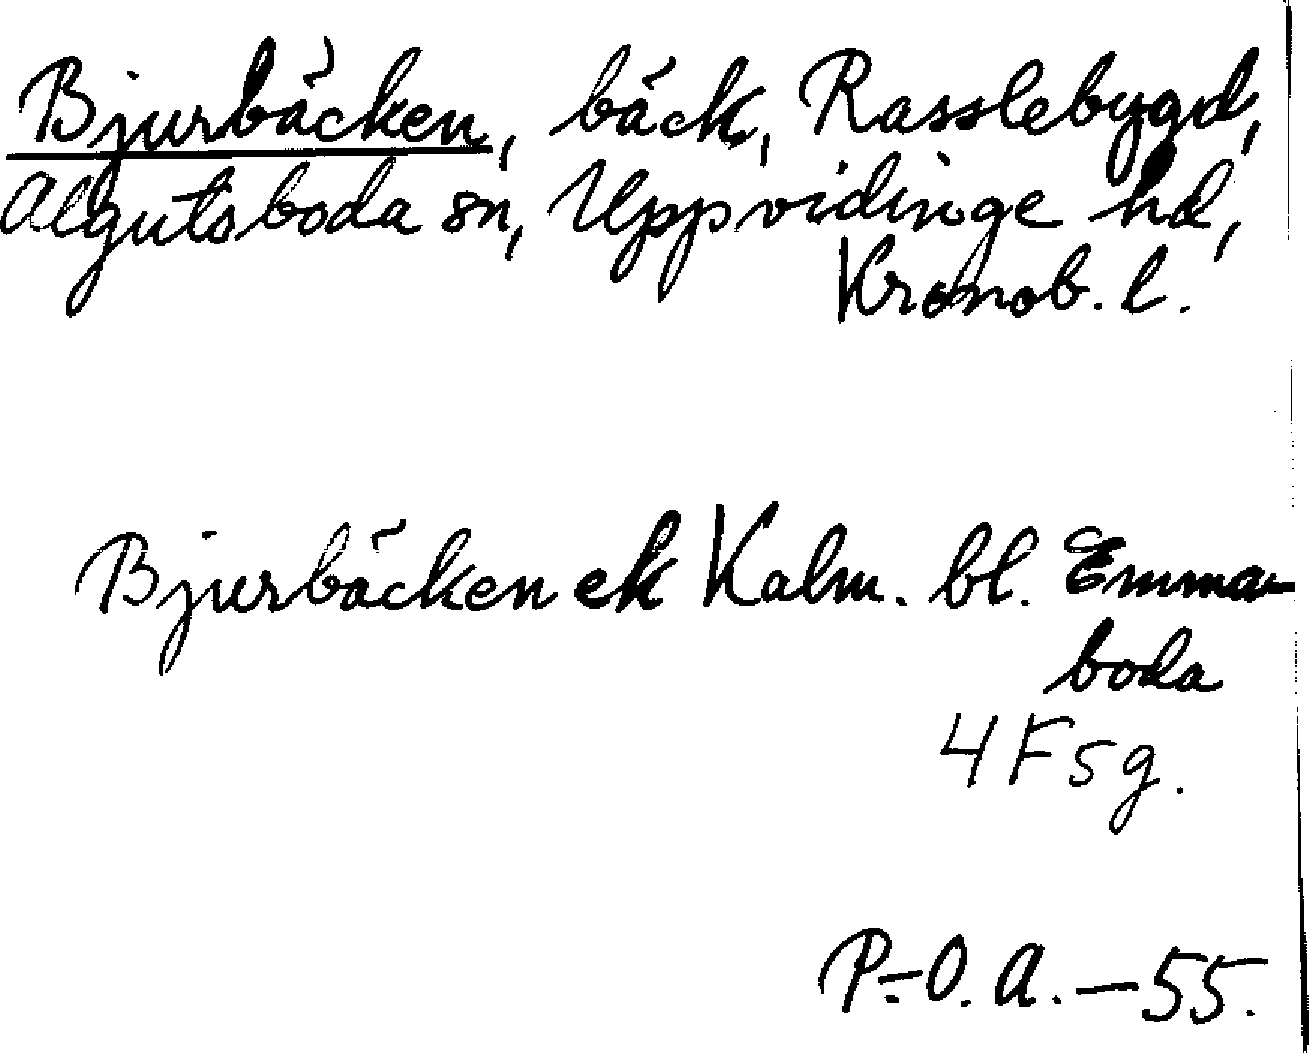 Bjurbäcken, bäck, Rasslebygd,
Algutsboda sn, Uppvidinge hd,
Kronob. l.
Bjurbäcken ek Kalm. bl. Emma-
boda
4F5g.
P.-O. A. – 55.